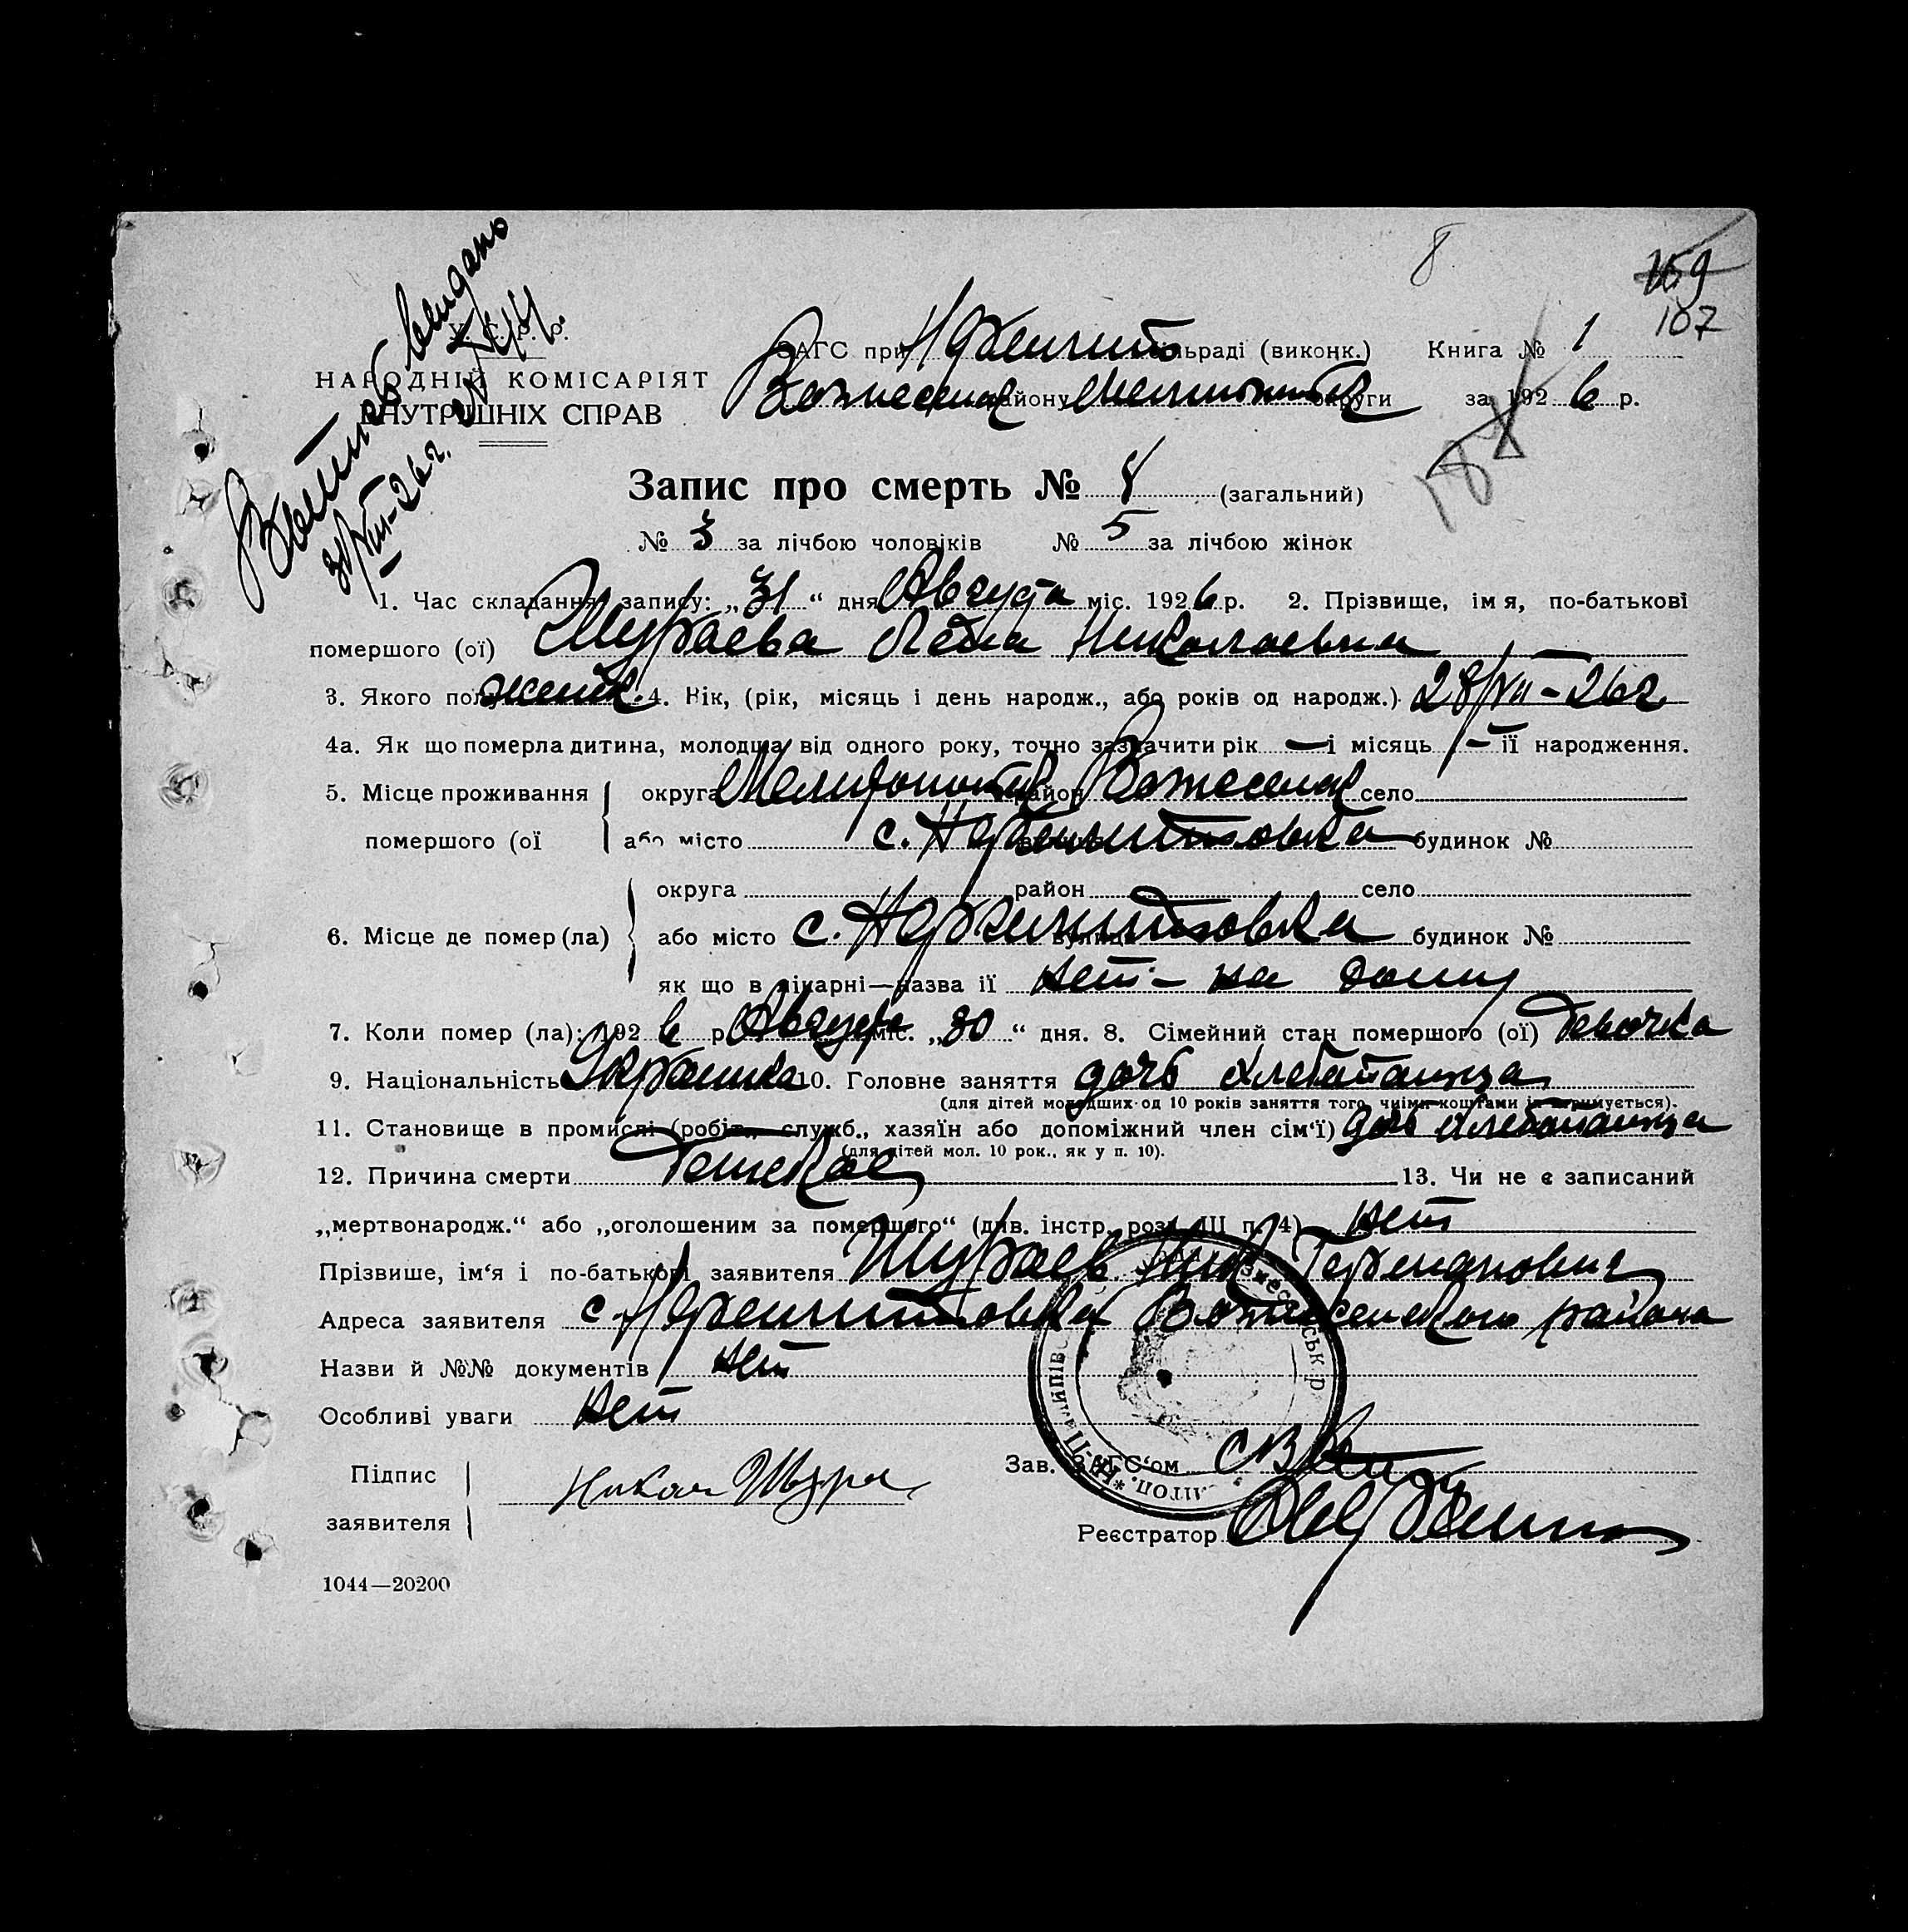 8
159
107
У. С. Р. Р.
ЗАГС при сільраді (виконк.) Книга № 1
НАРОДНІЙ КОМІСАРІЯТ
Вознесенск району округи за 1926 р.
ВНУТРІШНІХ СПРАВ
188
выдано
31/VIII-26 г. № 44.
Запис про смерть № 8 (загальний)
№ 3 за лічбою чоловіків № 5 за лічбою жінок
1. Час складання запису: „31“ дня Августа міс. 1926 р. 2. Прізвище, імя, по-батькові
помершого (ої) Шураева Николаевна
3. Якого полу женск. 4. Вік, (рік, місяць і день народж., або років од народж.). 28/VII-26 г.
4а. Як що померла дитина, молодша від одного року, точно зазначити рік — і місяць — її народження.
5. Місце проживання округа Мелитопольск район Вознесенск село
помершого (ої або місто будинок №
округа район село
6. Місце де помер (ла) або місто вулиця будинок №
як що в лікарні—назва її нет - на дому
7. Коли помер (ла): 1926 р. Августа міс. „30“ дня. 8. Сімейний стан помершого (ої) Девочка
9. Національність Украинка 10. Головне заняття дочь хлебопашца
(для дітей молодших од 10 років заняття того, чиїми коштами їх утримується).
11. Становище в промислі (робіт., служб., хазяїн або допоміжний член сім'ї) дочь хлебопашца
(для дітей мол. 10 рок., як у п. 10).
12. Причина смерти Детская 13. Чи не є записаний
„мертвонародж.“ або „оголошеним за помершого“ (див. інстр. розд. III п. 4) нет
Прізвище, ім'я і по-батькові заявителя Шураев Ник Германович
Адреса заявителя Вознесенского района
Назви й №№ документів нет
Особливі уваги нет
Підпис
заявителя Никол Шура
Зав. ЗАГС'ом
Реєстратор
1044—20200